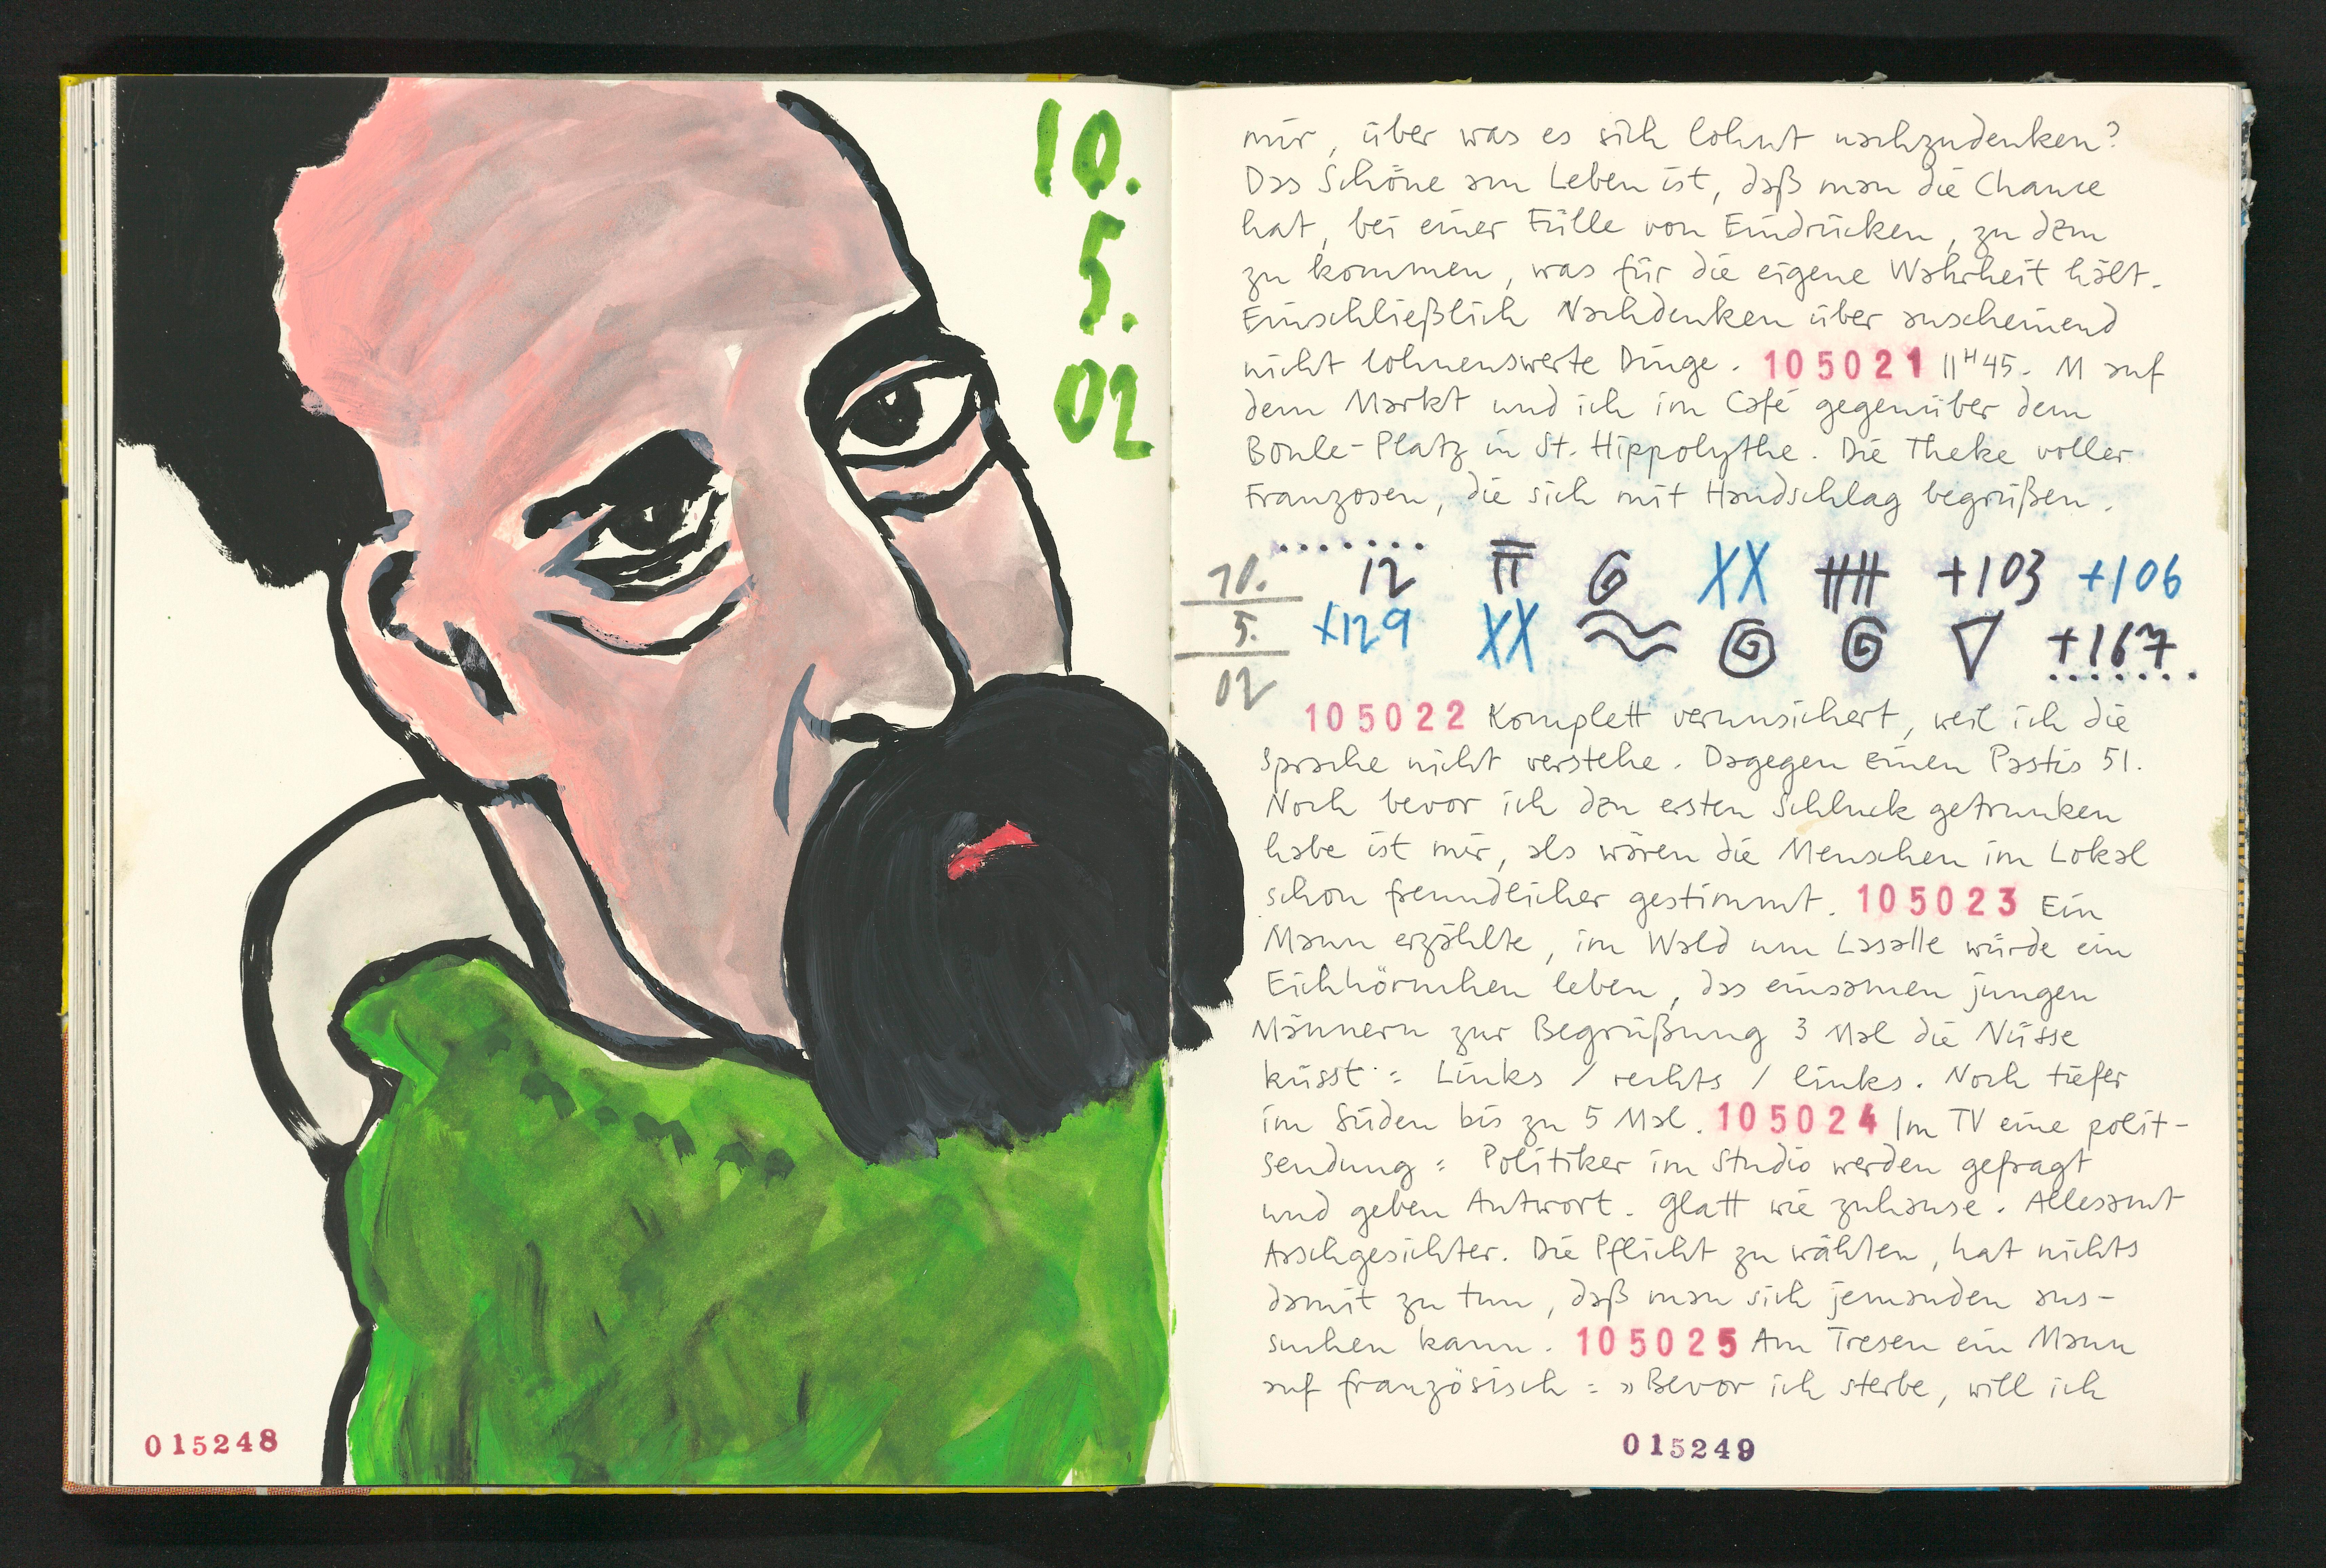 10.
5.
02
015248
mir, über was es sich lohnt nachzudenken?
Das Schöne am Leben ist, daß man die Chance
hat, bei einer Fülle von Eindrücken, zu dem
zu kommen, was für die eigene Wahrheit hält.
Einschließlich Nachdenken über anscheinend
nicht lohnenswerte Dinge. 105021 11H45. M auf
dem Markt und ich im Café gegenüber dem
Boule-Platz in St. Hippolythe. Die Theke voller
Franzosen, die sich mit Handschlag begrüßen.
10.
5.
02
12 XX +103 +106
+129 XX +167
105022 Komplett verunsichert, weil ich die
Sprache nicht verstehe. Dagegen einen Pastis 51.
Noch bevor ich den ersten Schluck getrunken
habe ist mir, als wären die Menschen im Lokal
schon freundlicher gestimmt. 105023 Ein
Mann erzählte, im Wald um Lasalle würde ein
Eichhörnchen leben, das einsamen jungen
Männern zur Begrüßung 3 Mal die Nüsse
küsst: Links / rechts / links. Noch tiefer
im Süden bis zu 5 Mal. 105024 Im TV eine polit-
sendung: Politiker im Studio werden gefragt
und geben Antwort. Glatt wie zuhause. Allesamt
Arschgesichter. Die Pflicht zu wählen, hat nichts
damit zu tun, daß man sich jemanden aus-
suchen kann. 105025 Am Tresen ein Mann
auf französisch: »Bevor ich sterbe, will ich
015249